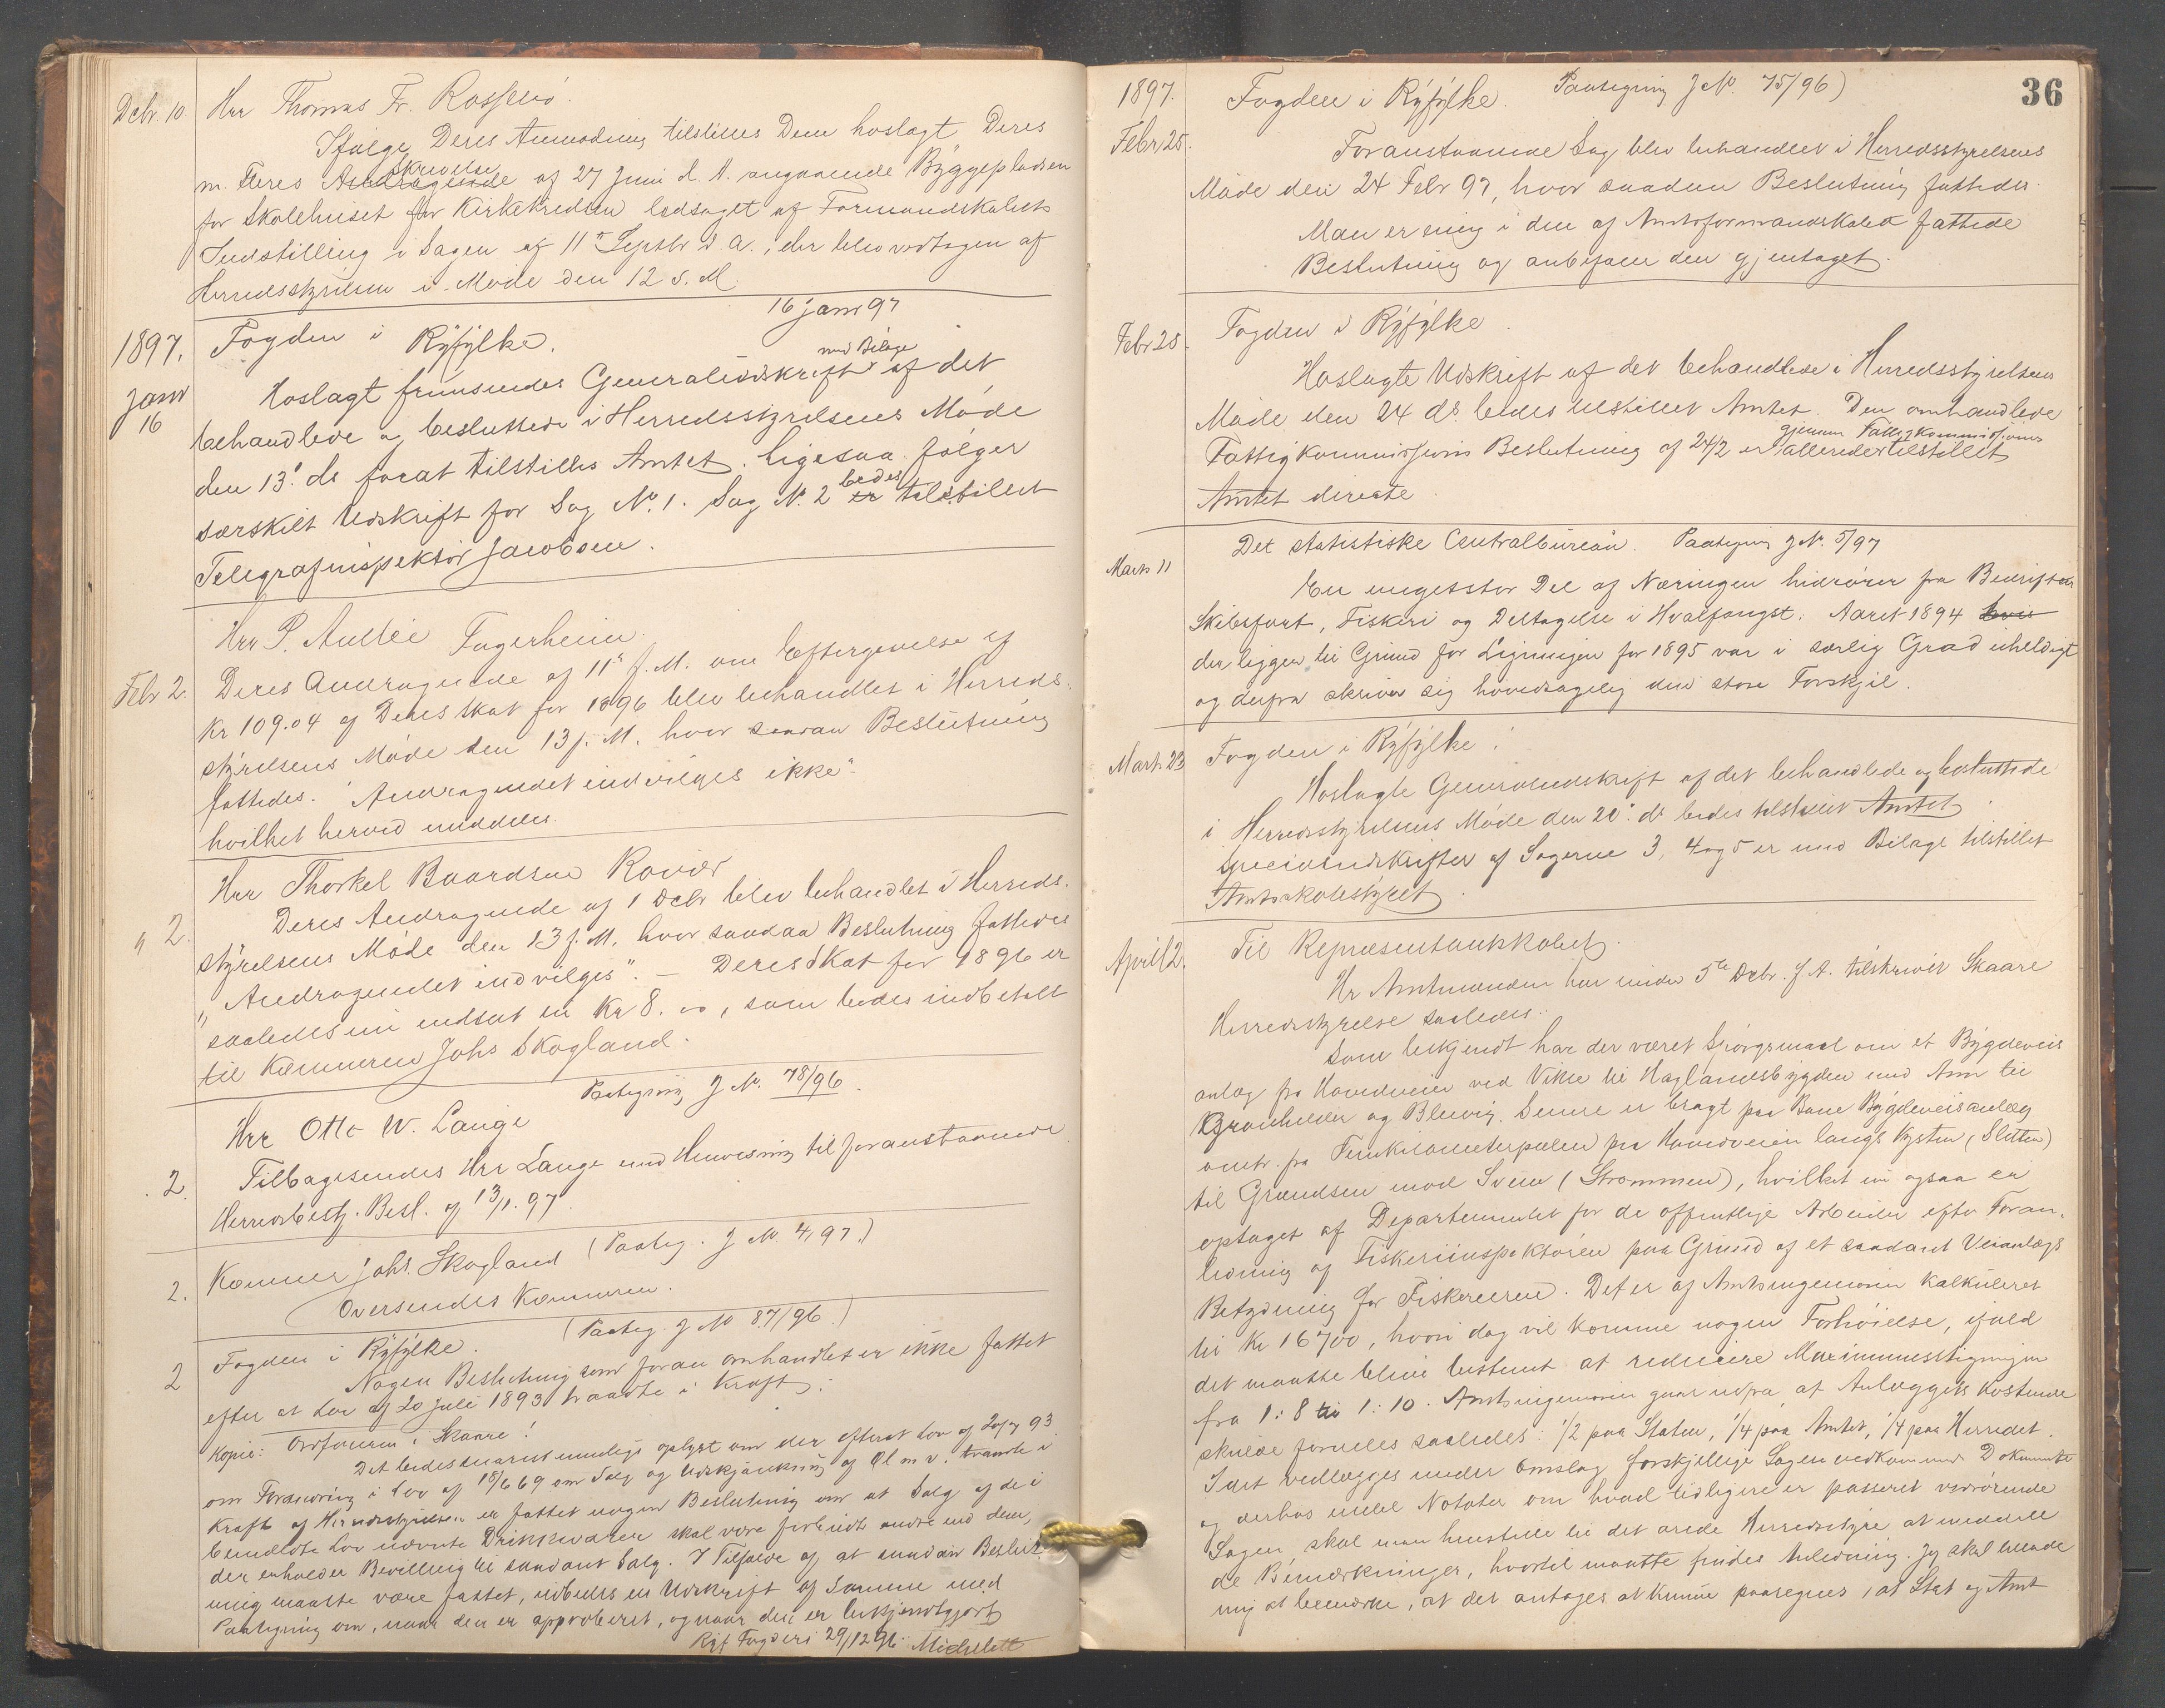 Dcbr. 10. Hrr Thomas Fr. Rossebö.
Ifölge Deres Anmodning tilstilles Dem hoslagt Deres
m. Fleres Andragende Skrivelse af 27 Juni d. A. angaaende Byggepladsen
for Skolehuset for Kirkekredsen ledsaget af Formandskabets
Indstilling i Sagen af 11te Septbr d. A., der blev vedtagen af
Herredsstyrelsen i Møde den 12 s. M.
16 janr 97
1897. Fogden i Ryfylke.
Janr 16 Hoslagt fremsendes Generaludskrift med Bilage af det
behandlede og besluttede i Herredsstyrelsens Møde
den 13. ds forat tilstilles Amtet. Ligesaa følger
særskilt Udskrift for Sag No. 1. Sag N. 2 er bedes tilstillet
Telegrafinspektör Jacobsen.
Hrr P. Amlie Fagerheim.
Febr 2. Deres Andragende af 11te f. M. om Eftergivelse af
Kr 109.04 af Deres Skat for 1896 blev behandlet i Herreds-
styrelsens Møde den 13 f. M. hvor saadan Beslutning
fattedes. "Andragendet indvilges ikke"
hvilket herved meddeles.
Hrr Thorkel Baardsen Rovær
" 2. Deres Andragende af 1 Dcbr blev behandlet i Herreds-
styrelsens Møde den 13 f. M. hvor saadan Beslutning fattedes
"Andragendet indvilges". – Deres Skat for 1896 er
saaledes nu nedsat til Kr 8.00, som bedes indbetalt
til Kæmneren Johs Skogland.
Paategning J N. 78/96.
Hrr Otto W. Lange
2. Tilbagesendes Hrr Lange med Henvisning til foranstaaende
Herredsbest. Besl. af 13/1. 97
2. Kæmner Johs. Skogland (Paateg. J N. 4/97.)
Oversendes Kæmneren.
(Paateg. J No 87/96.)
2 Fogden i Ryfylke.
Nogen Beslutning som foran omhandlet er ikke fattet
efter at Lov af 20 juli 1893 traadte i Kraft.
Kopie: Ordføreren i Skaare!
Det bedes snarest muligt oplyst om der efterat Lov af 20/7 93
om Forandring i Lov af 18/6 69 om Salg og Udskjænkning af Øl m. v. traadte i
Kraft af Herredsstyrelsen er fattet nogen Beslutning om at Salg af de i
bemeldte Lov nævnte Drikkevarer skal være forbudt andre end dem,
der erholder Bevilling til saadant Salg. I Tilfælde af at saadan Beslut-
ning maatte være fattet, udbedes en Udskrift af Samme med
Paategning om, naar den er approberet, og naar den er bekjendtgjort
Ryf Fogderi 29/12 96. Michelett
36
1897. Fogden i Ryfylke. Paategning J N. 75/96)
Febr 25. Foranstaaende Sag blev behandlet i Herredsstyrelsens
Møde den 24 Febr 97, hvor saadan Beslutning fattedes.
Man er enig i den af Amtsformandskabet fattede
Beslutning og anbefaler den gjentaget.
Febr 25. Fogden i Ryfylke.
Hoslagte Udskrift af det behandlede i Herredsstyrelsens
Møde den 24 ds bedes tilstillet Amtet. Den omhandlede
Fattigkommissions Beslutning af 24/2 er gjennem Fattigkommissionen allerede tilstillet
Amtet directe.
Det statistiske Centralbureau. Paategning J N. 5/97
Marts 11 En meget stor Del af Næringen hidrører fra Bedriften
Skibsfart, Fiskeri og Deltagelse i Hvalfangst. Aaret 1894 hvis
der ligger til Grund for Ligningen for 1895 var i særlig Grad uheldigt
og derfra skriver sig hovedsagelig den store Forskjel.
Mart. 23 Fogden i Ryfylke!
Hoslagte Generaludskrift af det behandlede og besluttede
i Herredsstyrelsens Møde den 20. ds bedes tilstillet Amtet.
Specialudskrifter af Sagerne 3, 4 og 5 er med Bilage tilstillet
Amtsskolestyret.
April 2. Til Repræsentantskabet.
Hr Amtmanden har under 5te Dcbr. f. A. tilskrevet Skaare
Herredsstyrelse saaledes:
Som bekjendt har der været Spørgsmaal om et Bygdeveis
anlæg fra Hovedveien ved Vikse til Haglandsbygden med Arm til
Gronhelder og Blevig. Senere er bragt paa Bane Bygdeveisanlæg
omtr. fra Femkilometerpælen fra Hovedveien langs Kysten (Sletten)
til Grændsen mod Sveen (Strømmen), hvilket nu ogsaa er
optaget af Departementet for de offentlige Arbeider efter Foran-
ledning af Fiskeriinspektøren paa Grund af et saadant Veianlægs
Betydning for Fiskerierne. Det er af Amtsingeniøren kalkuleret
til Kr 16700, hvori dog vil komme nogen Forhøielse, ifald
det maatte blive bestemt at reducere Maximumsstigningen
fra 1:8 til 1:10. Amtsingeniøren gaar ud fra at Anlæggets Kostende
skulde fordeles saaledes: 1/2 paa Staten, 1/4 paa Amtet, 1/4 paa Herredet.
Idet vedlægges under Omslag forskjellige Sagen vedkommende Dokumenter
og derhos endel Notater om hvad tidligere er passeret vedrørende
Sagen, skal man henstille til det ærede Herredsstyre at meddele
de Bemærkninger, hvortil maatte findes Anledning. Jeg skal tillade
mig at bemærke, at det antages at kunne paaregnes, at Stat og Amt